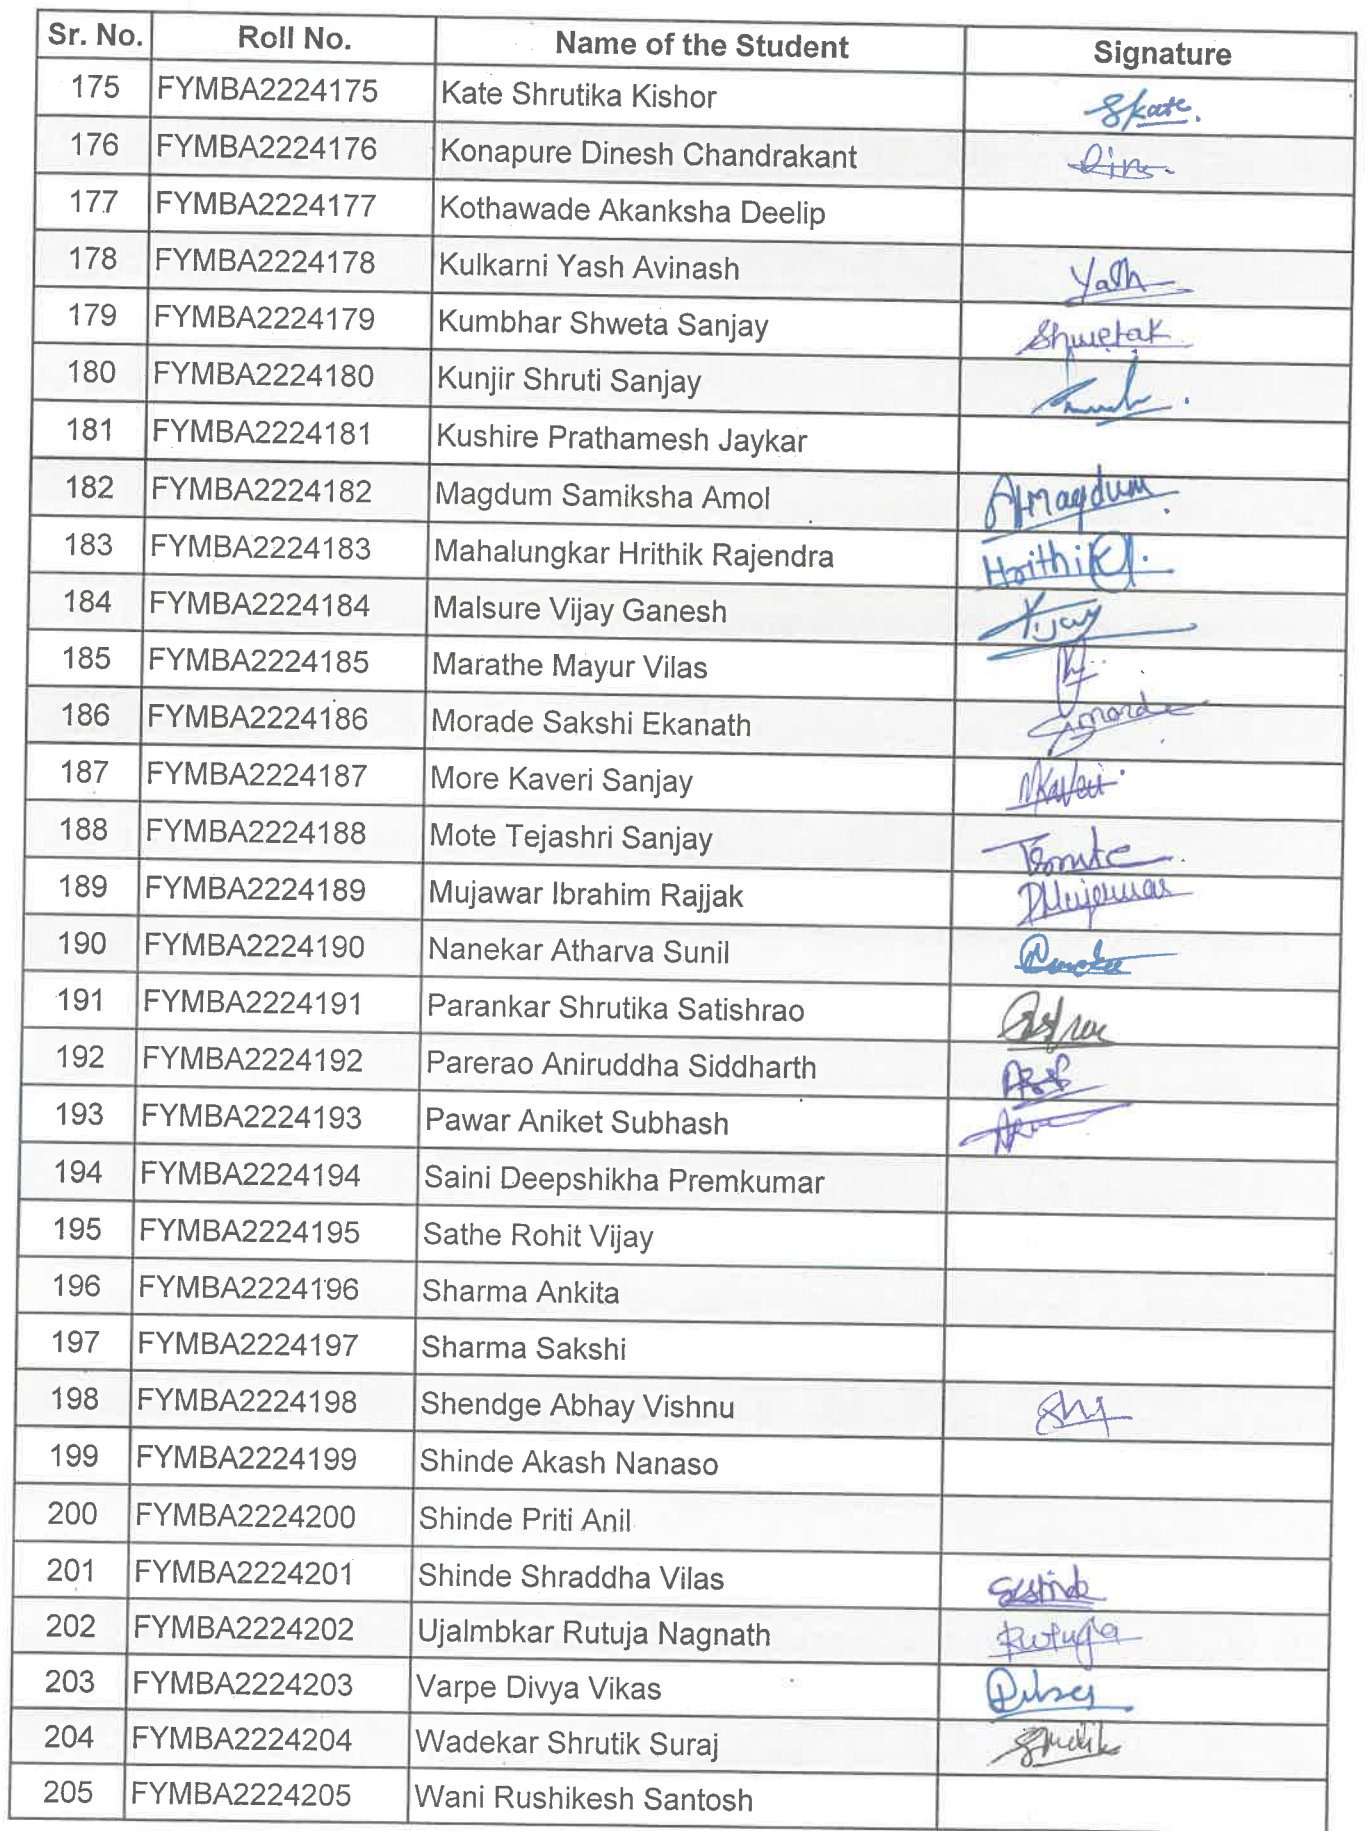 Sr. No. Roll No. Name of the Student Signature
175 FYMBA2224175 Kate Shrutika Kishor Skate.
176 FYMBA2224176 Konapure Dinesh Chandrakant
177 FYMBA2224177 Kothawade Akanksha Deelip
178 FYMBA2224178 Kulkarni Yash Avinash Yash
179 FYMBA2224179 Kumbhar Shweta Sanjay Shwetak
180 FYMBA2224180 Kunjir Shruti Sanjay
181 FYMBA2224181 Kushire Prathamesh Jaykar
182 FYMBA2224182 Magdum Samiksha Amol
183 FYMBA2224183 Mahalungkar Hrithik Rajendra Hrithik
184 FYMBA2224184 Malsure Vijay Ganesh Vijay
185 FYMBA2224185 Marathe Mayur Vilas
186 FYMBA2224186 Morade Sakshi Ekanath
187 FYMBA2224187 More Kaveri Sanjay MKaveri
188 FYMBA2224188 Mote Tejashri Sanjay
189 FYMBA2224189 Mujawar Ibrahim Rajjak
190 FYMBA2224190 Nanekar Atharva Sunil
191 FYMBA2224191 Parankar Shrutika Satishrao
192 FYMBA2224192 Parerao Aniruddha Siddharth
193 FYMBA2224193 Pawar Aniket Subhash
194 FYMBA2224194 Saini Deepshikha Premkumar
195 FYMBA2224195 Sathe Rohit Vijay
196 FYMBA2224196 Sharma Ankita
197 FYMBA2224197 Sharma Sakshi
198 FYMBA2224198 Shendge Abhay Vishnu
199 FYMBA2224199 Shinde Akash Nanaso
200 FYMBA2224200 Shinde Priti Anil
201 FYMBA2224201 Shinde Shraddha Vilas
202 FYMBA2224202 Ujalmbkar Rutuja Nagnath Rutuja
203 FYMBA2224203 Varpe Divya Vikas
204 FYMBA2224204 Wadekar Shrutik Suraj
205 FYMBA2224205 Wani Rushikesh Santosh